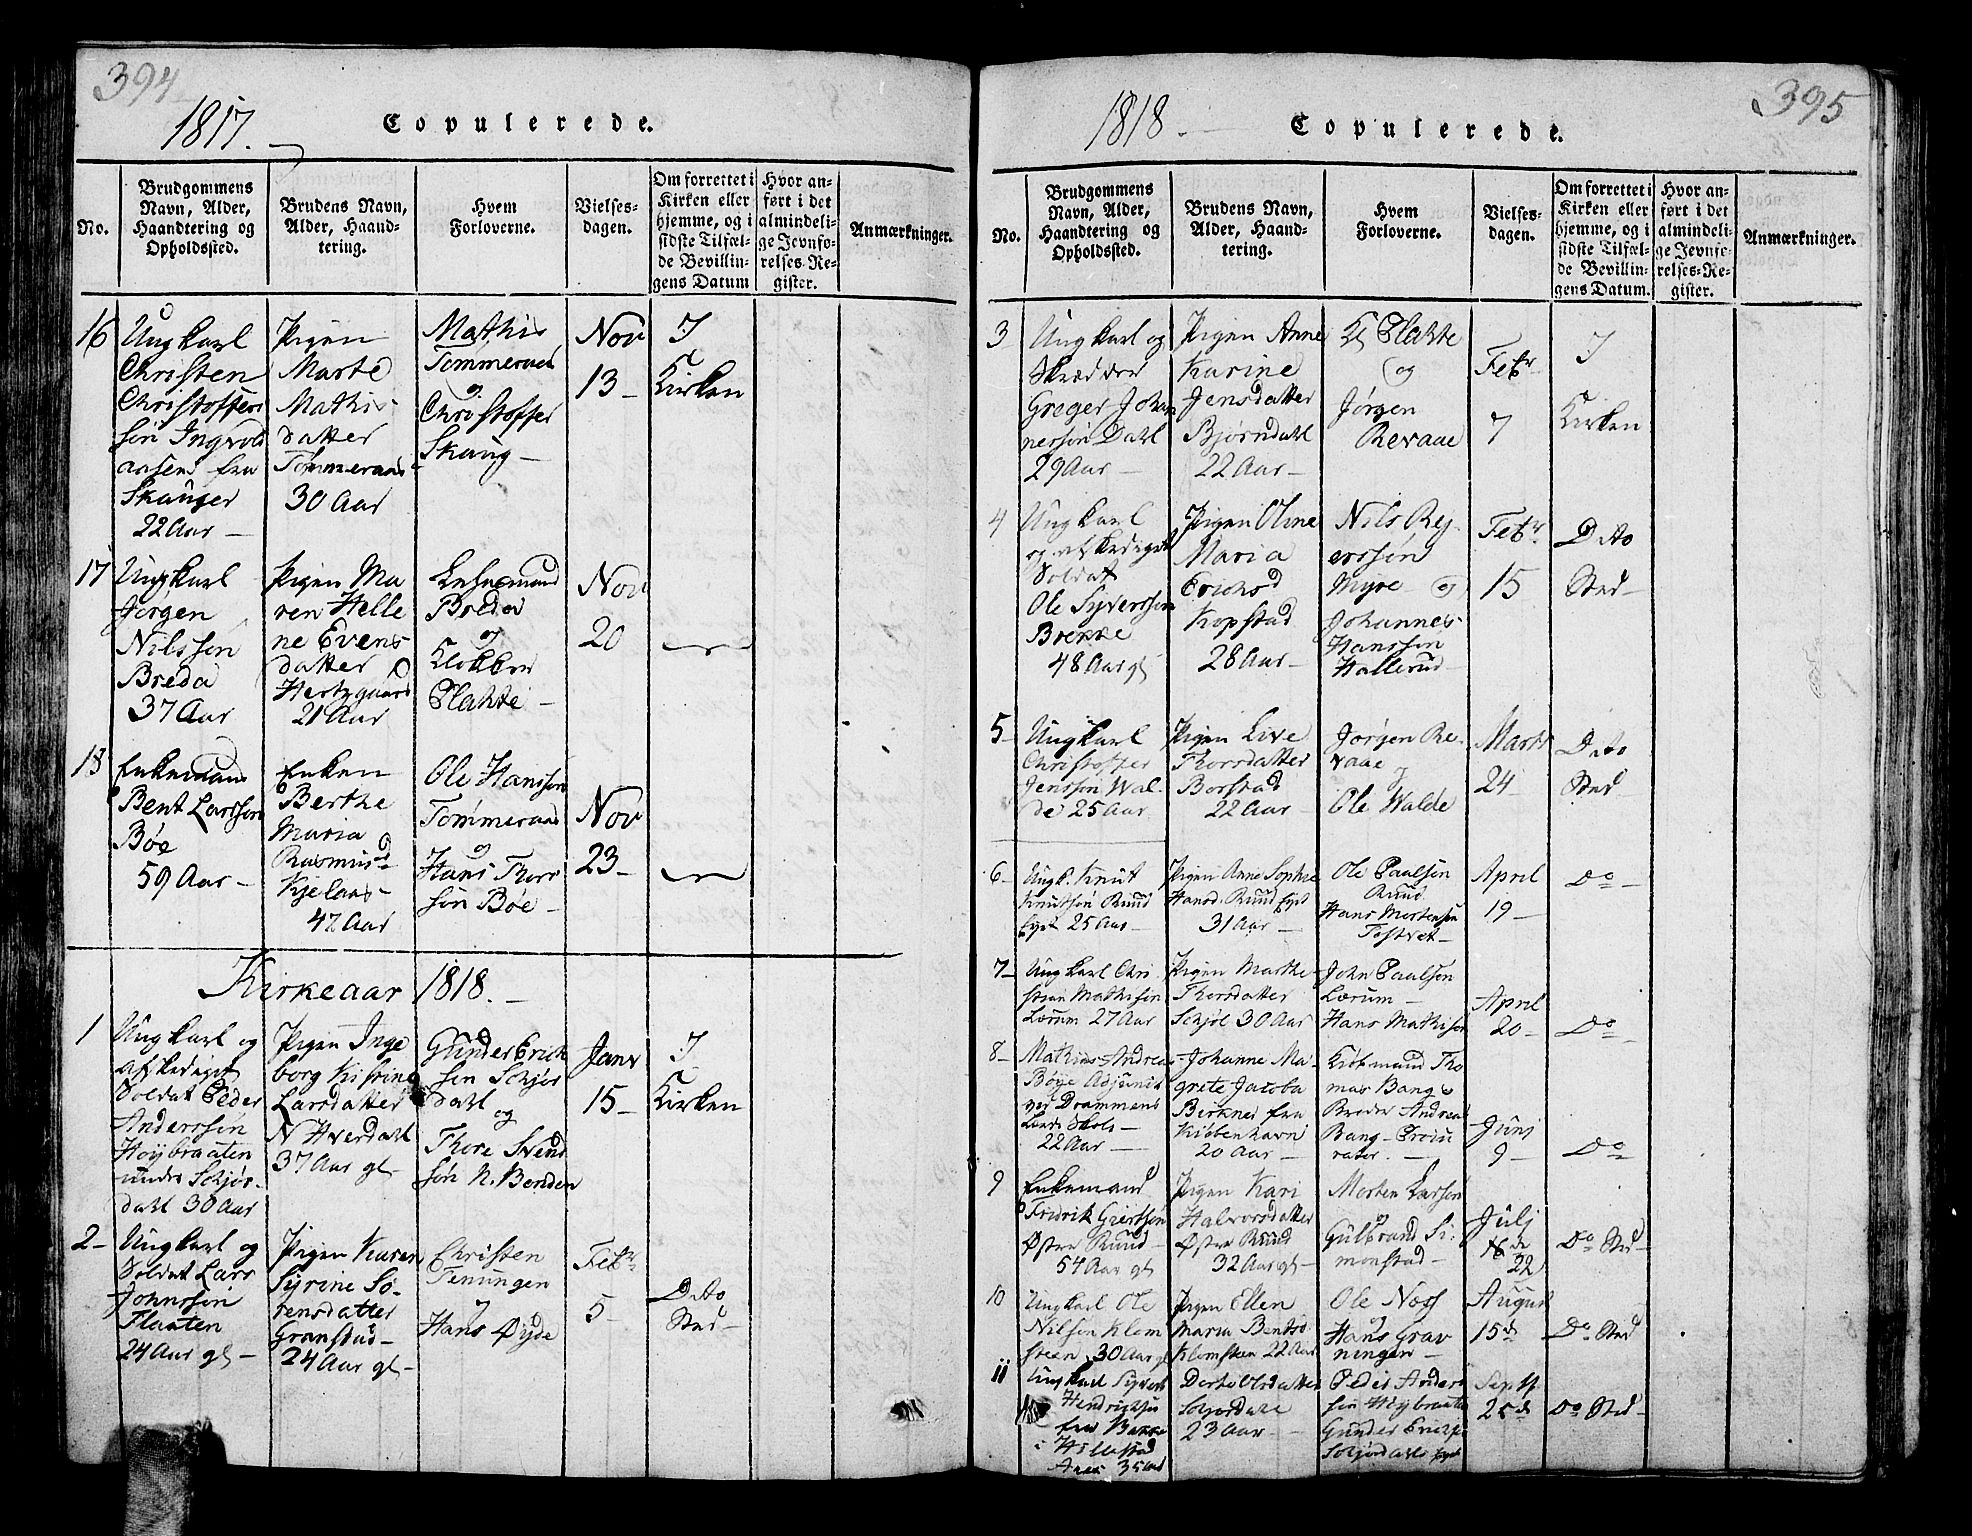 394
1817.
Copulerede.
No.
Brudgommens
Navn, Alder,
Haandtering og
Opholdssted.
Brudens Navn,
Alder, Haand-
tering.
Hvem
Forloverne.
Vielses-
dagen.
Om forrettet i
Kirken eller
hjemme, og i
sidste Tilfæl-
de Bevillin-
gens Datum
Hvor an-
ført i det
almindeli-
ge Jevnfø-
relses-Re-
gister.
Anmærkninger.
16
Ungkarl
Christen
Christoffers
søn Ingvold
fra
Skauger
22 Aar
Pigen
Marte
Mathis
datter
Tømmeraas
30 Aar
Mathis
Tømmeraas
og
Christoffer
Skaug
Nov
13
I
Kirken
17
Ungkarl
Jørgen
Nilssøn
Breda
37 Aar
Pigen Ma
ren Helle
ne Evens
datter
Hertzgaard
21 Aar
Lehnsmand
Breda
og
Klokker
Plahte
Nov
20
18
Enkemand
Bent Larssøn
Bøe
59 Aar
Enken
Berthe
Maria
Rasmusd
Kjelaas
42 Aar
Ole Hanssøn
Tømmeraas
og
Hans Thors
søn Bøe
Nov
23
Kirkeaar 1818.
1
Ungkarl og
afskediget
Soldat Peder
Anderssøn
Høybraaten
under Schjør
dahl 30 Aar
Pigen Inge
borg Kistine
Larsdatter
N Hverdahl
37 Aar gl
Gunder Erich
sen Schjør
dahl og
Thore Svend
søn N. Berden
Janv
15
I
Kirken
2
Ungkarl og
Soldat Lars
Johnssøn
Flaaten
24 Aar gl
Pigen Karen
Syrine Sø-
rensdatter
Granstad
24 Aar gl
Christen
Tenungen
Hans Øyde
Febr
5
Dito
Sted
395
1818
Copulerede.
No.
Brudgommens
Navn, Alder,
Haandtering og
Opholdssted.
Brudens Navn,
Alder, Haand-
tering.
Hvem
Forloverne.
Vielses-
dagen.
Om forrettet i
Kirken eller
hjemme, og i
sidste Tilfæl-
de Bevillin-
gens Datum.
Hvor an-
ført i det
almindeli-
ge Jevnfø-
relses-Re-
gister.
Anmærkninger.
3
Ungkarl og
Skrædder
Greger Johan
nessøn Dahl
29 Aar
Pigen Anne
Karine
Jensdatter
Bjørndahl
22 Aar
Kl Plahte
og
Jørgen
Revaae
Febr
7
I
Kirken
4
Ungkarl
og afskediget
Soldat
Ole Syverssøn
Brekke
48 Aar gl
Pigen Oline
Maria
Erichsd
Kopstad
28 Aar
Nils Rej
erssøn
Myre og
Johannes
Hanssøn
Hallerud
Febr
15
Dito
Sted
5
Ungkarl
Christoffer
Jenssøn Wal-
de 25 Aar
Pigen Live
Thorsdatter
Borstad
22 Aar
Jørgen Re-
vaae
og
Ole Walde
Marts
24
Dito
Sted
6
Ungk. Knut
Knutsøn Ruud
Eyet 25 Aar
Pigen Anne Sophie
Hansd. Ruud Eyet
31 Aar
Ole Paulsøn
Ruud
Hans Mortensøn
Tostvet
April
19
Do
7
Ungkarl Chri
stian Mathisøn
Lærum 27 Aar
Pigen Marthe
Thorsdatter
Schjøl 30 Aar
John Paulsøn
Lærum
Hans Mathisøn
April
20
Do
8
Mathias Andreas
Bøye Adjunkt
ved Drammens
Lærde Skole
22 Aar
Johanne Ma-
grete Jacoba
Berkner fra
Kiøbenhavn
20 Aar
Kiøbmand Tho
mas Bang
Broder Andreas
Bang Procu
rator.
Junj
9
Do
9
Enkemand
Fredrik Giertsøn
Østre Ruud
54 Aar gl
Pigen Kari
Halvorsdatter
Østre Ruud
32 Aar gl
Morten Larsøn
og
Gulbrand Si-
monstad
Julj
22
Do Sted
10
Ungkarl Ole
Nilsøn Klom
steen 30 Aar gl
Pigen Ellen
Maria Bentsd
Klomsteen 22 Aar
Ole Noss
og
Hans Grav
ningen
August
15d
Do Sted
11
Ungkarl Syvert
Hendrichsøn
fra Bakke
i Hillestad
Aar 35
Dorte Olsdatter
Schjørdahl
23 Aar
Peder Anders
søn Høybraaten
Gunder Erich
Schjørdahl
Septb
25d
Do Sted